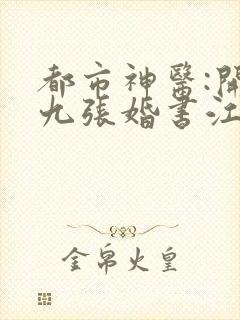 都市神醫:開
九張婚書江
金帛火皇